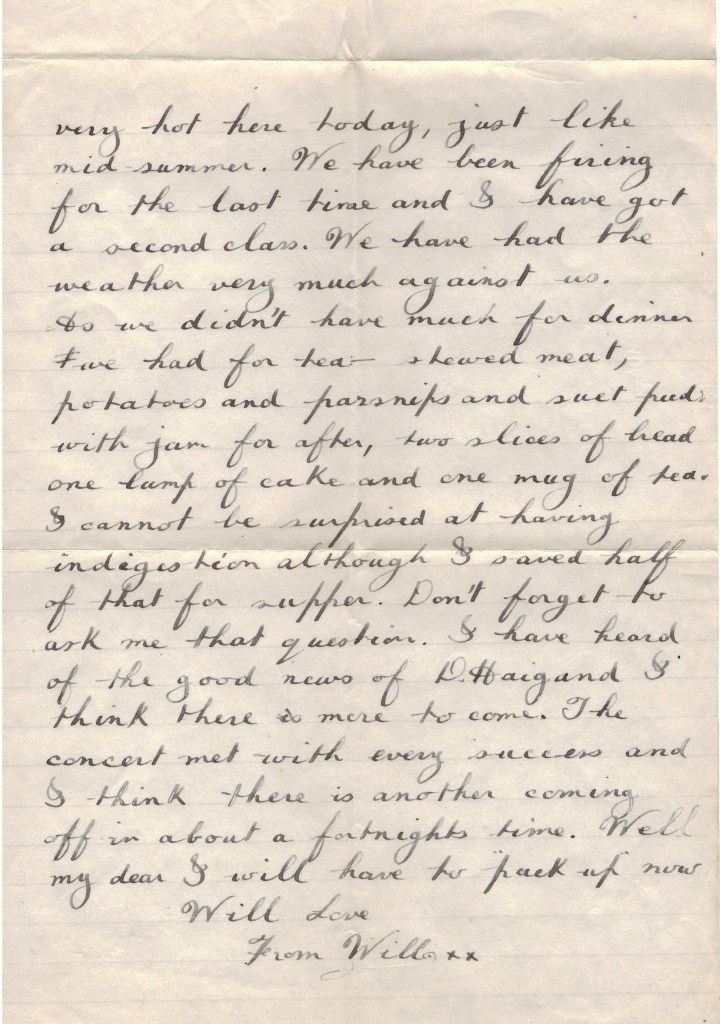 very hot here today, just like
mid-summer. We have been firing
for the last time and I have got
a second class. We have had the
weather very much against us.
As we didn't have much for dinner
we had for tea — stewed meat,
potatoes and parsnips and suet pud:
with jam for after, two slices of bread
one lump of cake and one mug of tea.
I cannot be surprised at having
indigestion although I saved half
of that for supper. Don't forget to
ask me that question. I have heard
of the good news of D. Haig and I
think there is more to come. The
concert met with every success and
I think there is another coming
off in about a fortnights time. Well
my dear I will have to "pack up" now
Will Love
From Will xx